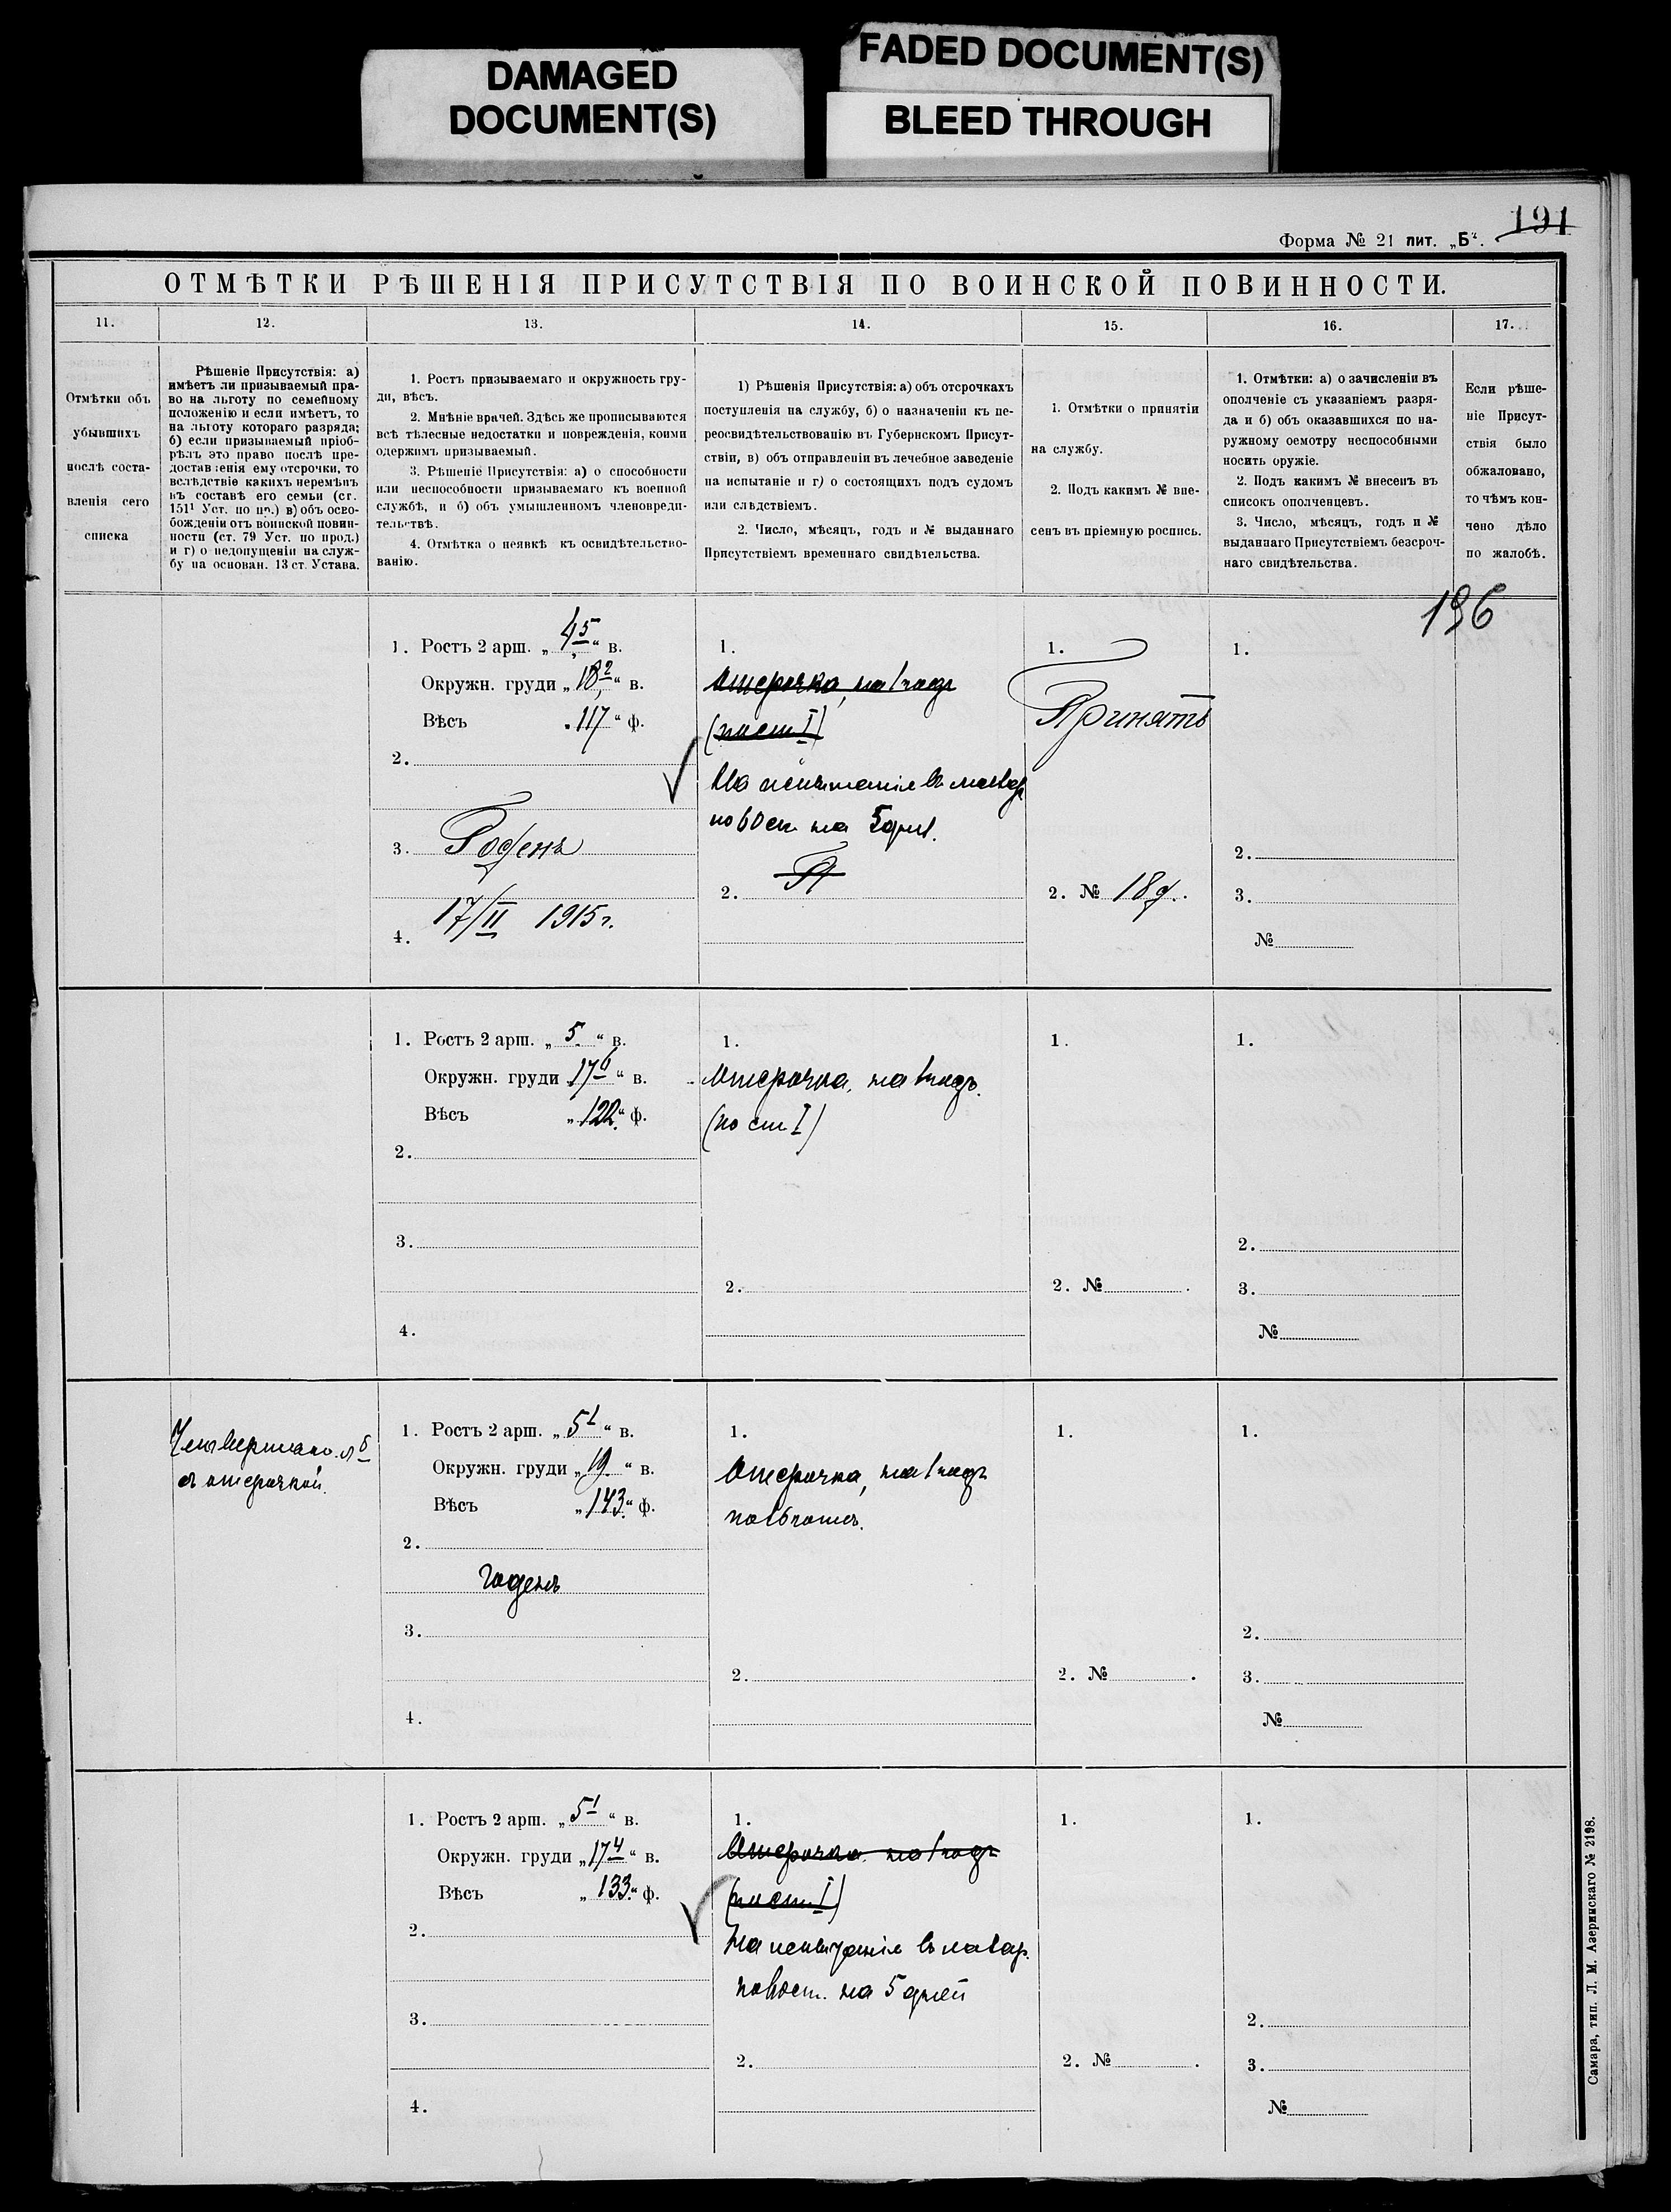 DAMAGED
DOCUMENT(S)
FADED DOCUMENT(S)
BLEED THROUGH
191
Форма № 21 лит. „Б“.
ОТМѢТКИ РѢШЕНІЯ ПРИСУТСТВІЯ ПО ВОИНСКОЙ ПОВИННОСТИ.
11.
12.
13.
14.
15.
16.
17.
Отмѣтки объ
убывшихъ
послѣ соста-
вленія сего
списка
Рѣшеніе Присутствія: а)
имѣетъ ли призываемый пра-
во на льготу по семейному
положенію и если имѣетъ, то
на льготу котораго разряда;
б) если призываемый пріоб-
рѣлъ это право послѣ пре-
доставленія ему отсрочки, то
вслѣдствіе какихъ перемѣнъ
въ составѣ его семьи (ст.
151¹ Уст. по пр.) в) объ осво-
божденіи отъ воинской повин-
ности (ст. 79 Уст. по прод.)
и г) о недопущеніи на служ-
бу на основан. 13 ст. Устава.
1. Ростъ призываемаго и окружность гру-
ди, вѣсъ.
2. Мнѣніе врачей. Здѣсь же прописываются
всѣ тѣлесные недостатки и поврежденія, коими
одержимъ призываемый.
3. Рѣшеніе Присутствія: а) о способности
или неспособности призываемаго къ военной
службѣ, и б) объ умышленномъ членовреди-
тельствѣ.
4. Отмѣтка о неявкѣ къ освидѣтельство-
ванію.
1) Рѣшенія Присутствія: а) объ отсрочкахъ
поступленія на службу, б) о назначеніи къ пе-
реосвидѣтельствованію въ Губернскомъ Присут-
ствіи, в) объ отправленіи въ лечебное заведеніе
на испытаніе и г) о состоящихъ подъ судомъ
или слѣдствіемъ.
2. Число, мѣсяцъ, годъ и № выданнаго
Присутствіемъ временнаго свидѣтельства.
1. Отмѣтки о принятіи
на службу.
2. Подъ какимъ № вне-
сенъ въ пріемную роспись.
1. Отмѣтки: а) о зачисленіи въ
ополченіе съ указаніемъ разря-
да и б) объ оказавшихся по на-
ружному осмотру неспособными
носить оружіе.
2. Подъ какимъ № внесенъ въ
списокъ ополченцевъ.
3. Число, мѣсяцъ, годъ и №
выданнаго Присутствіемъ безсроч-
наго свидѣтельства.
Если рѣше-
ніе Присут-
ствія было
обжаловано,
то чѣмъ кон-
чено дѣло
по жалобѣ.
196
1. Ростъ 2 арш. „ 4 5 “ в.
Окружн. груди „ 18 2 “ в.
Вѣсъ „ 117 “ ф.
2.
3. Годенъ
17/II 1915 г.
4.
1.
Отсрочка, на 1 годъ
(по ст I)
На испытаніе въ
на 5 дней.
2.
1.
Принятъ
2. № 189.
1.
2.
3.
№
1. Ростъ 2 арш. „ 5. “ в.
Окружн. груди 17 6 “ в.
Вѣсъ „ 122 “ ф.
2.
3.
4.
1.
Отсрочка, на 1 годъ.
(по ст I)
2.
1.
2. №
1.
2.
3.
№
с отсрочкой.
1. Ростъ 2 арш. „ 5 1 “ в.
Окружн. груди „ 19. “ в.
Вѣсъ „ 143 “ ф.
2.
годенъ
3.
4.
1.
Отсрочка, на 1 годъ
2.
1.
2. №
1.
2.
3.
№
1. Ростъ 2 арш. „ 5 1 “ в.
Окружн. груди „ 17 4 “ в.
Вѣсъ „ 133 “ ф.
2.
3.
4.
1.
Отсрочка на 1 годъ
(по ст. I)
На испытаніе въ лазар.
на 5 дней
2.
1.
2. №
1.
2.
3.
№
Самара, тип. Л. М. Азеринскаго № 2198.